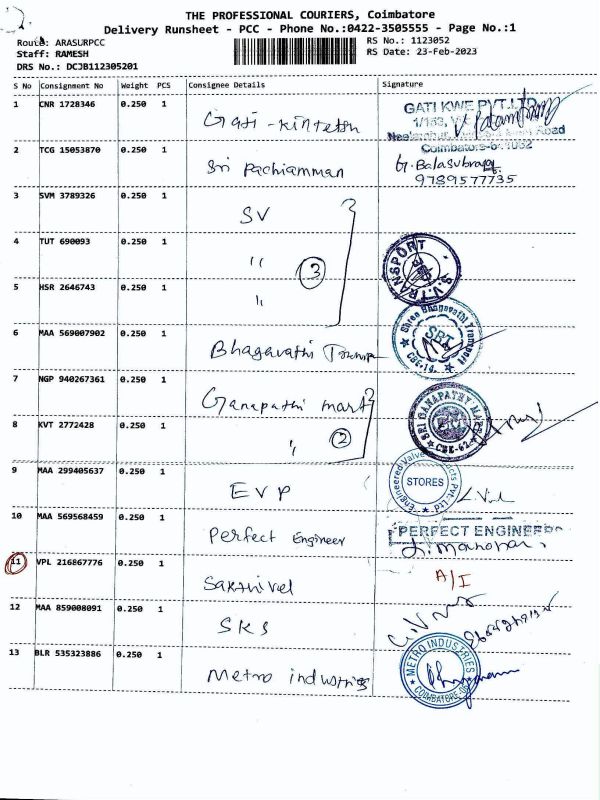 THE PROFESSIONAL COURIERS, Coimbatore
Delivery Runsheet - PCC - Phone No.:0422-3505555 - Page No.:1
Route: ARASURPCC RS No.: 1123052
Staff: RAMESH RS Date: 23-Feb-2023
DRS No.: DCJB112305201
S No Consignment No Weight PCS Consignee Details Signature
1 CNR 1728346 0.250 1 Gati - Kintetsu GATI KWE PVT.LTD
Coimbatore-641062
2 TCG 15053870 0.250 1 Sri Pachiamman G. Balasubraj
9789577735
3 SVM 3789326 0.250 1 SV
4 TUT 690093 0.250 1 " 3 S.V. TRANSPORT
5 HSR 2646743 0.250 1 "
Shree Bhagavathi Transport
SBT
CBE-14.
6 MAA 569007902 0.250 1 Bhagavathi
7 NGP 940267361 0.250 1 Ganapathi mart
SRI GANAPATHY MART
CBE-62
8 KVT 2772428 0.250 1 " 2
9 MAA 299405637 0.250 1 EVP Engineered Valve Pvt.Ltd
STORES
10 MAA 569568459 0.250 1 Perfect Engineer PERFECT ENGINEERS
L. Manohar.
11 VPL 216867776 0.250 1 Sakthivel A/I
12 MAA 859008091 0.250 1 SKS
13 BLR 535323886 0.250 1 Metro industries METRO INDUSTRIES
COIMBATORE